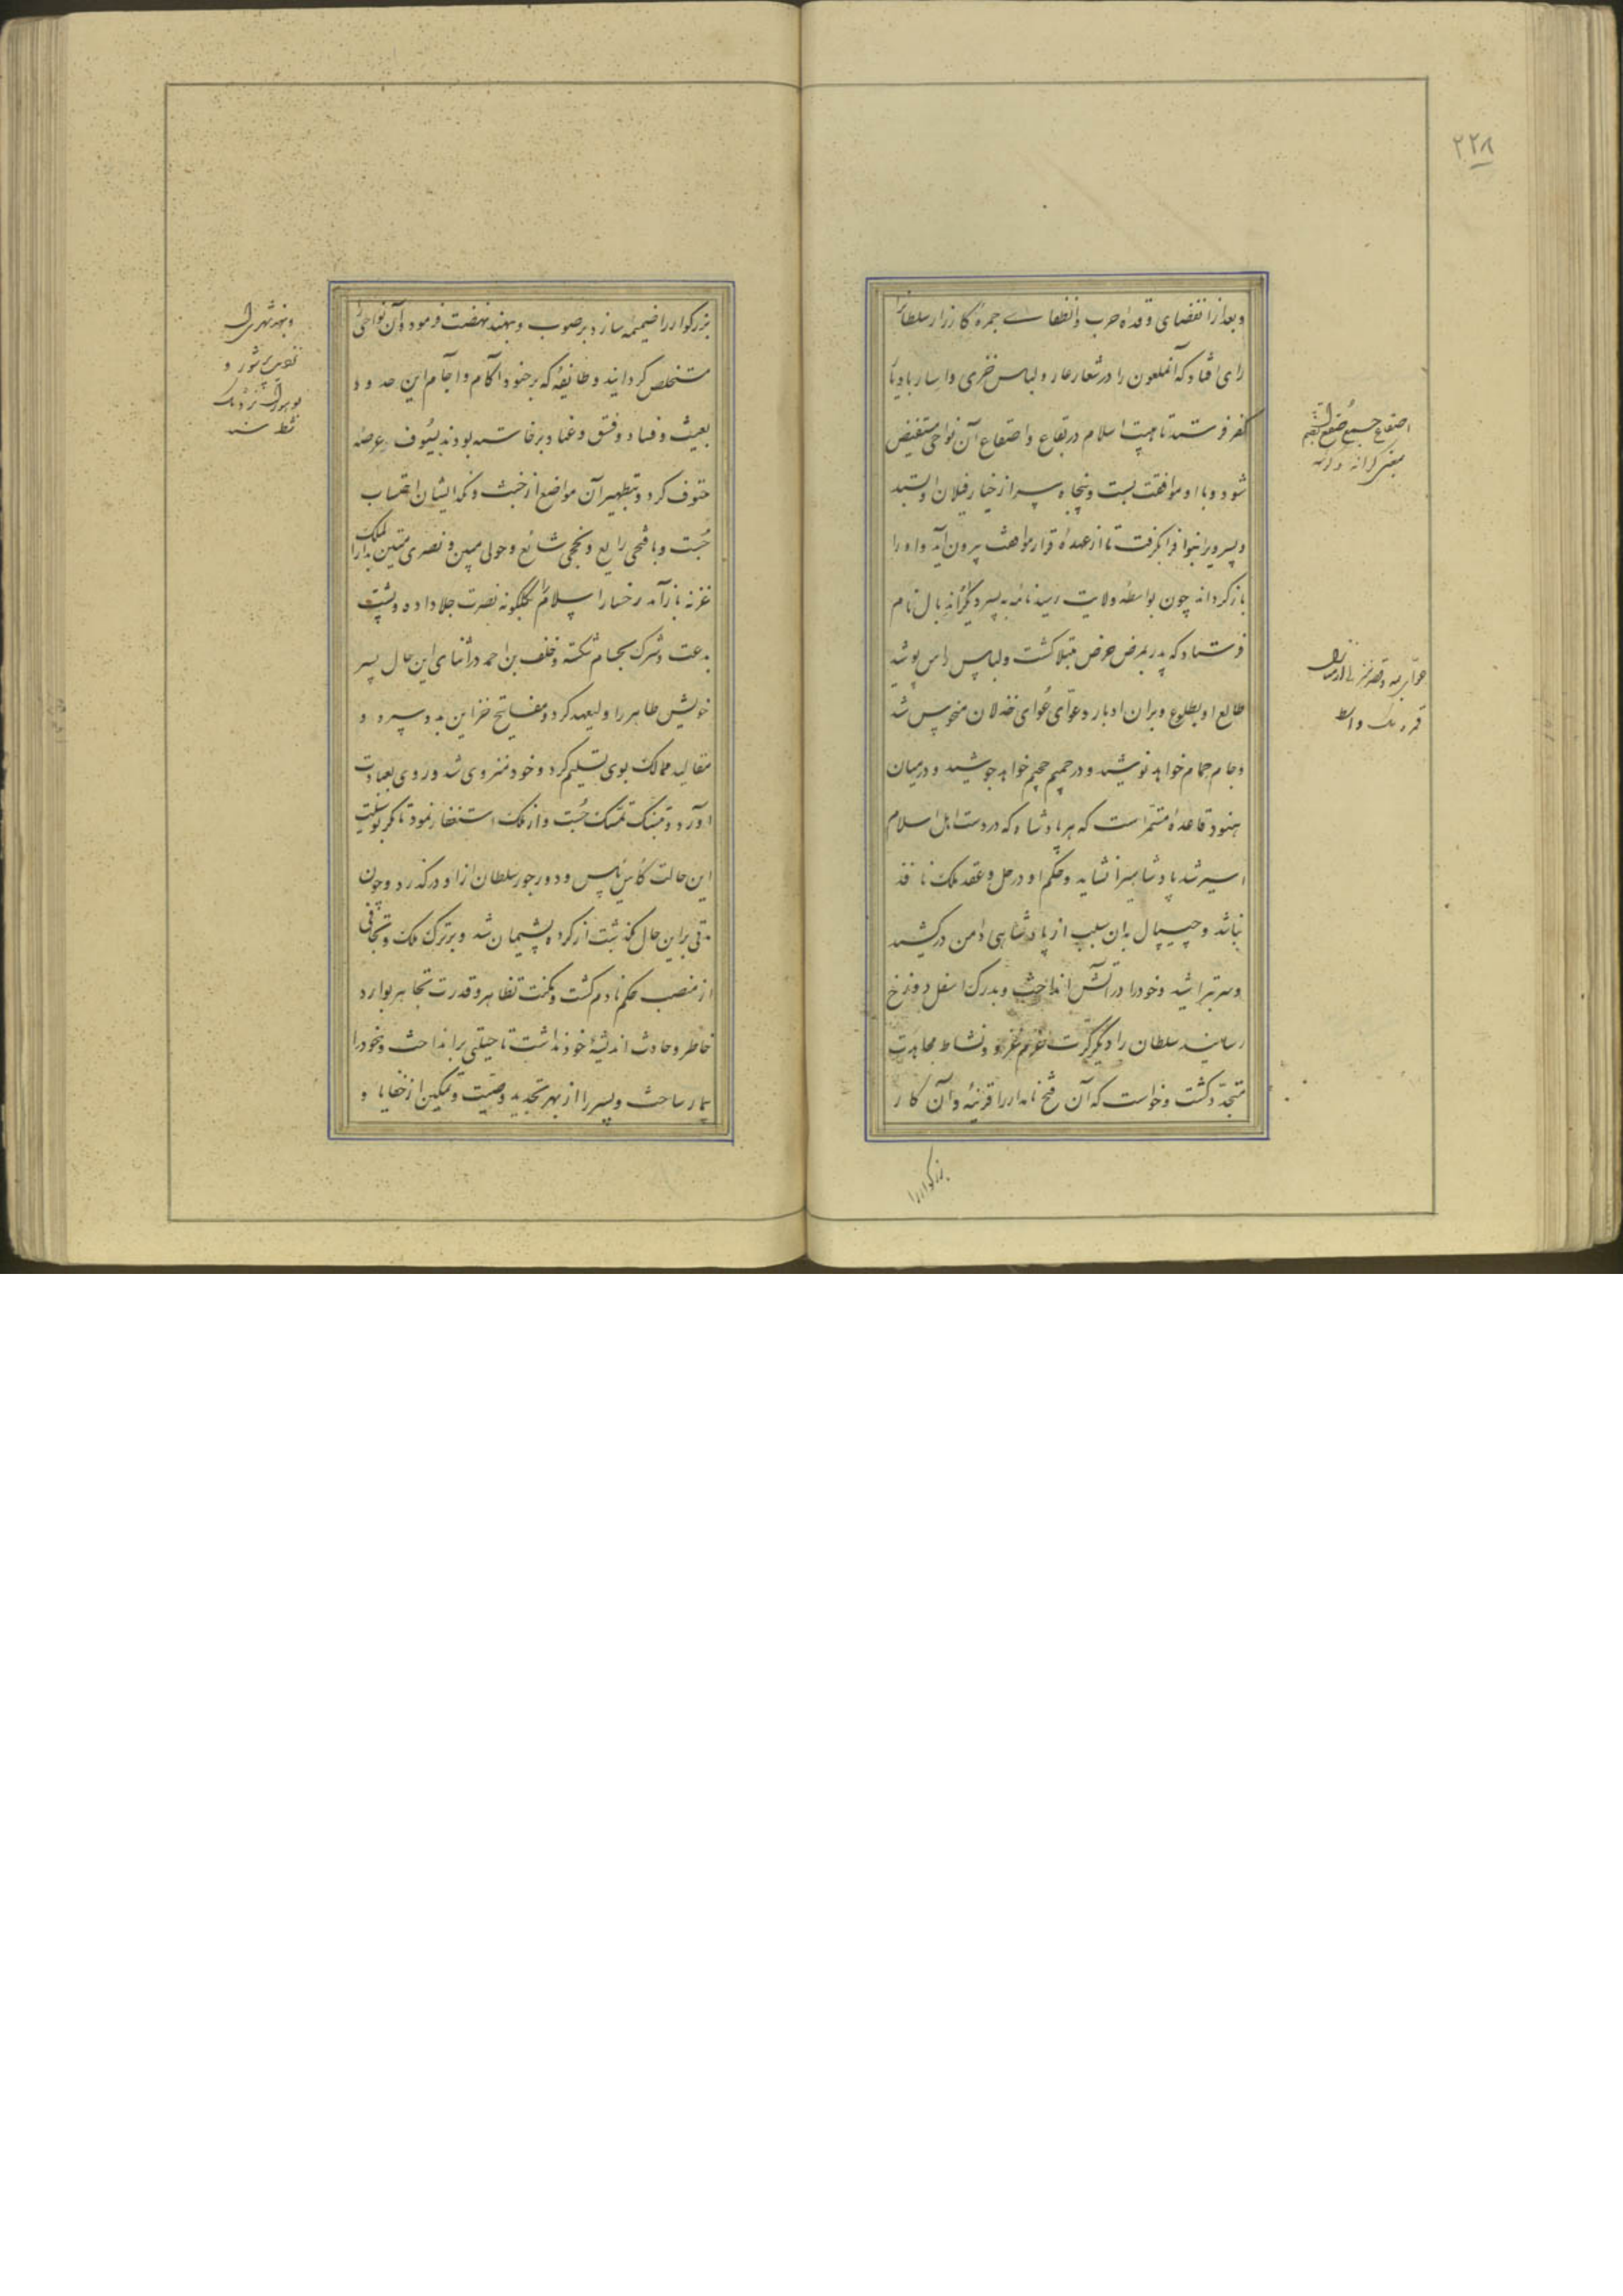 ۲۲۸
وبعد از انقضای وقداه حرب و انطفاے جمره کارزار سلطانرا
رای افتاد که آنملعون را در شعار عار و لباس خزی و اسار با دیار
کفر فرستد تا هیبت اسلام در بقاع و اصقاع آن نواحی مستفیض
شود و با او موافقت بست و پنجاه سر از خیار فیلان او بستد
و پسر ویرا بنوا فرا گرفت تا از عهدهٔ قرار مواهت بیرون آید و او را
باز گردانه چون بواسطهٔ ولایت رسید نامه به پسر دیگر اندبال نام
فرستاد که پدر بمرض حرض مبتلا گشت و لباس یاس پوشید
طالع او بطلوع دبران ادبار و عوّای عُوای خذلان منحوس شد
و جام حمام خواهد نوشید و در حمیم جحیم خواهد جوشید و در میان
هنود قاعده مستمر است که هر پادشاه که در دست اهل اسلام
اسیر شد پادشاهیرا نشاید و حکم او در حل و عقد ملک نافذ
نباشد و چیپال بدان سبب از پادشاهی دامن در کشید
و سر بتراشید و خود را در آتش انداخت و بدرک اسفل دوزخ
رسانید سلطان را دیگر کرت عزم غزو و نشاط مجاهدت
متجدّد گشت و خواست که آن فتح نامدار را قرینهٔ و آن کار
بزرکوار را
اصقاع جمع صُقع
بزرکوار را ضمیمهٔ سازد بر صوب ویهند نهضت فرمود و آن نواحی را
مستخلص گردانید و طایفهٔ که بر جنود آکام و آجام این حدود
بعیث و فساد و فسق و عناد برخاسته بودند بسیوف عرضهٔ
حتوف کرد و بتطهیر آن مواضع از خبث و نکد ایشان احتساب
جُست و با فتحی رایع و نجحی شائع و حولی مبین و نصری متین بدار الملک
غزنه باز آمد رخسار اسلام را بگلگونه نصرت جلا داده و پشت
بدعت و شرک بحسام شکسته و خلف بن احمد در اثنای این حال پسر
خویش طاهر را ولیعهد کرد و مفاتیح خزاین بدو سپرد و
مقالید ممالک بوی تسلیم کرد و خود منزوی شد و روی بعبادت
آورد و تمسک جُست و از ملک استعفا نمود تا مگر بوسیلت
این حالت کاس باس و دور جور سلطان از او درگذرد و چون
مدتی بر این حال گذشت از کرده پشیمان شد و بر ترک ملک و تجافی
از منصب حکم نادم گشت و بمکنت تظاهر و قدرت تجاهر بوارد
خاطر و حادث اندیشهٔ خود نداشت تا حیلتی برانداخت و خود را
بیمار ساخت و پسر را از بهر تجدید وصیّت و تمکین از خفایا و